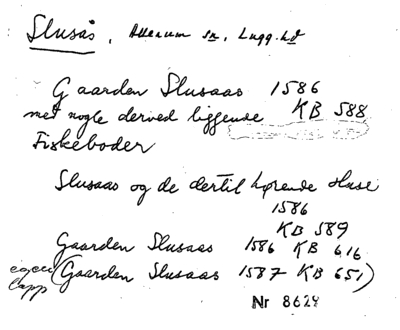 Slusås, Allerum sn, Lugg. hd
Gaarden Slusaas 1586
met nogle derved liggende KB 588
Fiskeboder
Slusaas og de dertil hørende Huse
1586
KB 589
Gaarden Slusaas 1586 KB 616
(Gaarden Slusaas 1587 KB 651)
Nr 8629